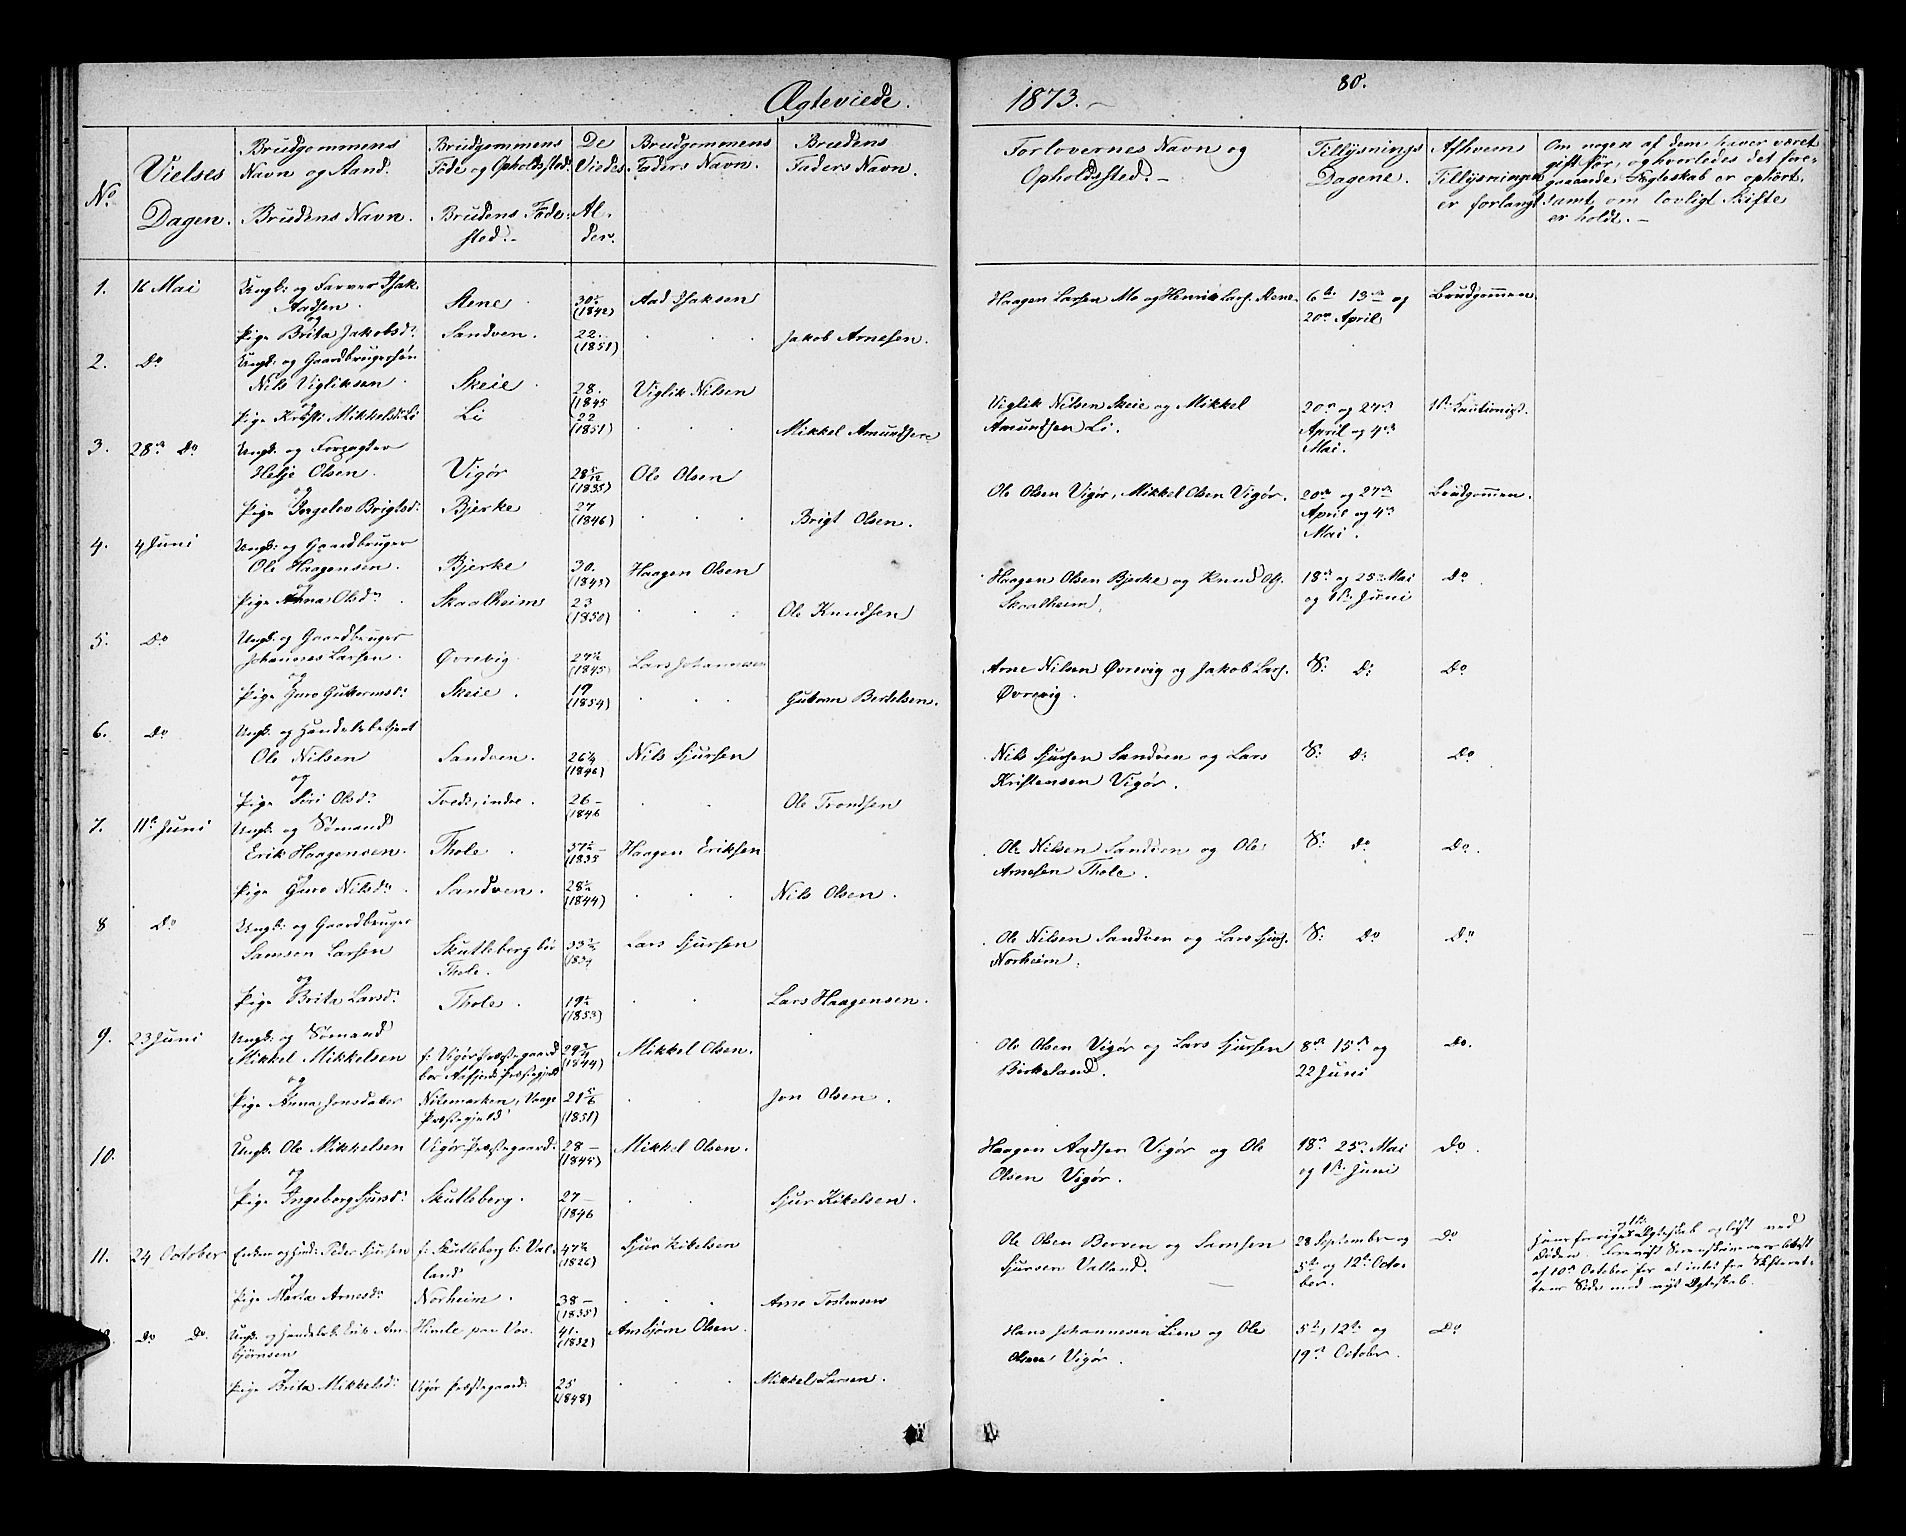 Ægteviede.
1873.
80.
No
Vielses
Dagen.
Brudgommens
Navn og Stand.
Brudens Navn.
Brudgommens
Føde og Opholdssted.
Brudens Føde-
sted.
De
Viedes
Al-
der.
Brudgommens
Faders Navn.
Brudens
Faders Navn.
Forlovernes Navn og
Opholdssted.
Tillysnings
Dagene.
Af hvem
Tillysningen
er forlangt
Om nogen af dem haver været
gift før, og hvorledes det fore-
gaaende Ægteskab er ophørt.
samt om lovligt Skifte
er holdt.
1. 16 Mai Ungk: og Farver Isak
Aadsen Stene (1842) Aad Isaksen Haagen Larsen Mo og Henrik Lars. Stene. 6te 13de og 20de April Brudgommen
og
Pige Brita Jakobsd: Sandven. 22. (1851) Jakob Arnesen.
2. Do Ungk: og Gaardbrugersøn
Nils Vigliksen Skeie 28. (1845 Viglik Nilsen Viglik Nilsen Skeie og Mikkel Amundsen Li. 20de og 27de April og 4de Mai.
og
Pige Mikkelsd: Li Li 22 (1851) Mikkel Amundsen
3. 28de Do Ungk: og Forpagter
Helje Olsen Vigør (1835) Ole Olsen Ole Olsen Vigør, Mikkel Olsen Vigør. 20de og 27de April og 4de Mai. Brudgommen.
og
Pige Brigtsd: Bjerke 27 (1846) Brigt Olsen.
4. 4 Juni Ungk: og Gaardbruger
Ole Haagensen. Bjerke 30. (1843) Haagen Olsen Haagen Olsen Bjerke og Knud Ols. Skaalheim, 18de og 25de Mai og 1ste Juni Do
og
Pige Anna Olsd: Skaalheim 23 (1850) Ole Knudsen
5. Do Ungk: og Gaardbruger
Johannes Larsen. Øvrevig. 27½ (1845) Lars Johannesen Arne Nilsen Øvrevig og Jakob Lars. Øvrevig. S: D: Do
og
Pige Guro Guttormsd: Skeie. 19 (1854) Guttorm Bertelsen.
6. Do Ungk: og Handelsbetjent
Ole Nilsen Sandven. 26¼ (1846) Nils Sjursen Nils Sjursen Sandven og Lars Kristensen Vigør. S: D: Do
og
Pige Siri Olsd: Tveds, indre. 26 – (1846 Ole Trondsen
7. 11te Juni Ungk: og Sømand
Erik Haagensen. Thole. 37½ (1835 Haagen Eriksen Ole Nilsen Sandven og Ole Arnesen Thole. S: Do Do.
og
Pige Guro Nilsd: Sandven. 28½ (1844) Nils Olsen.
8 Do Ungk: og Gaardbruger
Samsen Larsen Skutleberg bor Thole. Lars Sjursen Ole Nilsen Sandven og Lars Sjurs. Norheim. S: Do Do
og
Pige Brita Larsd: Thole. 19½ (1853) Lars Haagensen.
9. 23 Juni Ungk: og Sømand
Mikkel Mikkelsen f: Vigør Præstegaard bor Aafjords Præstegjeld (1844) Mikkel Olsen. Ole Olsen Vigør og Lars Sjursen Birkeland. 8de 15de og 22 Juni Do.
og
Pige Anna Jonsdatter Præstegjeld 21 5/6 (1851) Jon Olsen.
10. Ungk. Ole Mikkelsen Vigør Præstegaard. 28 – (1845) Mikkel Olsen. Haagen Aadsen Vigør og Ole Olsen Vigør. 18de 25de Mai og 1ste Juni Do.
og
Pige Ingeborg Sjursd: Skutleberg. 27 – (1846 Sjur Kikelsen.
11. 24 October Peder Sjursen f: Skutleberg b: Valland 47½ (1826) Sjur Kikelsen Ole Olsen Berven og Samsen Sjursen Valland. 28 September og 5te og 12te October. Do
og
Pige Marta Arnesd: Norheim. 38 – (1835) Arne Torstensen
Døden.
af 10de October for at intet fra Skifterettens Side mod nyt Ægteskab.
12. Do Do. Erik Ambjørnsen Himle paa Vos. 41. (1832) Ambjørn Olsen. Hans Johannesen Lien og Ole Olsen Vigør. 5te, 12te og 19de October. Do
og
Pige Brita Mikkelsd: Vigør Præstegaard. 25 (1848) Mikkel Larsen.